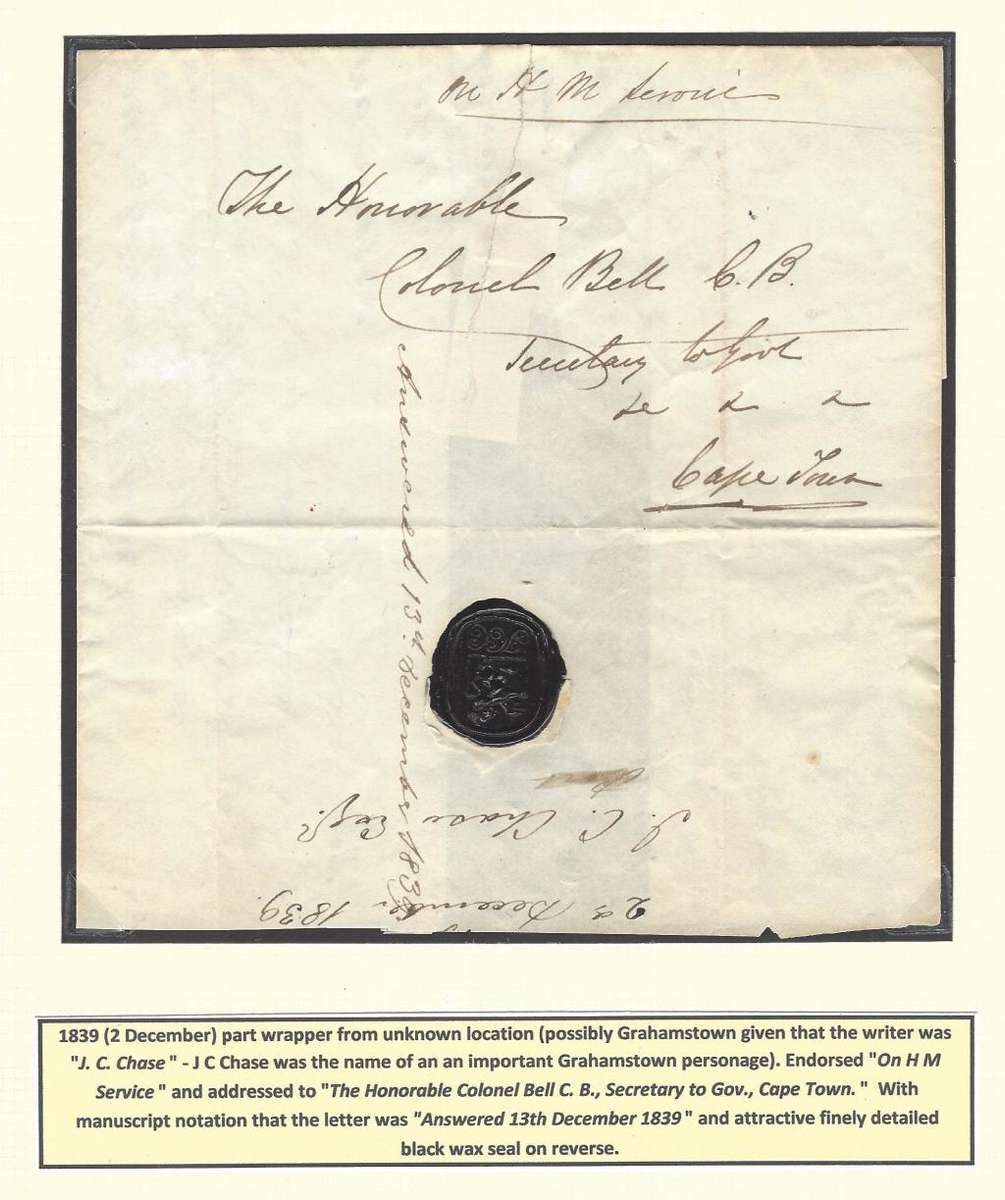 On H M Service
The Honorable
Colonel Bell C.B.
Secretary to Govt
&c & &
Cape Town
Answered 13th December 1839
J. C. Chase Esqr
2d December 1839.
1839 (2 December) part wrapper from unknown location (possibly Grahamstown given that the writer was
"J. C. Chase" - J C Chase was the name of an an important Grahamstown personage). Endorsed "On H M
Service" and addressed to "The Honorable Colonel Bell C. B., Secretary to Gov., Cape Town." With
manuscript notation that the letter was "Answered 13th December 1839" and attractive finely detailed
black wax seal on reverse.